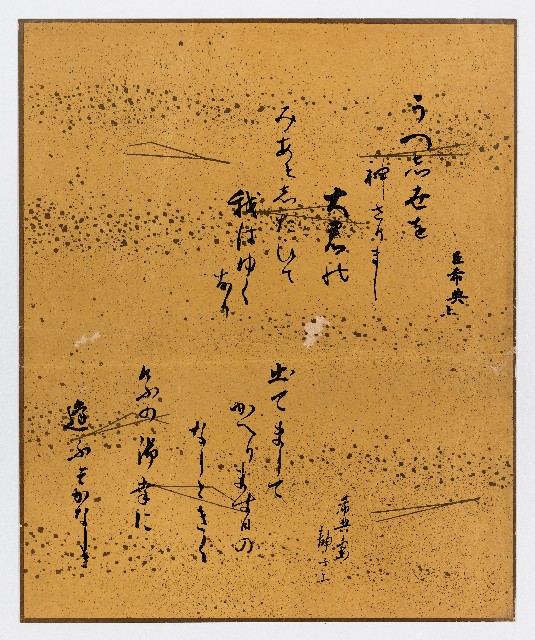 臣希典上
うつ志世を
神さりましゝ
大君の
みあと志たひて
我はゆく
なり
希典妻
静子上
出てまして
かへります日の
なしときく
けふの御幸に
逢ふそかなしき